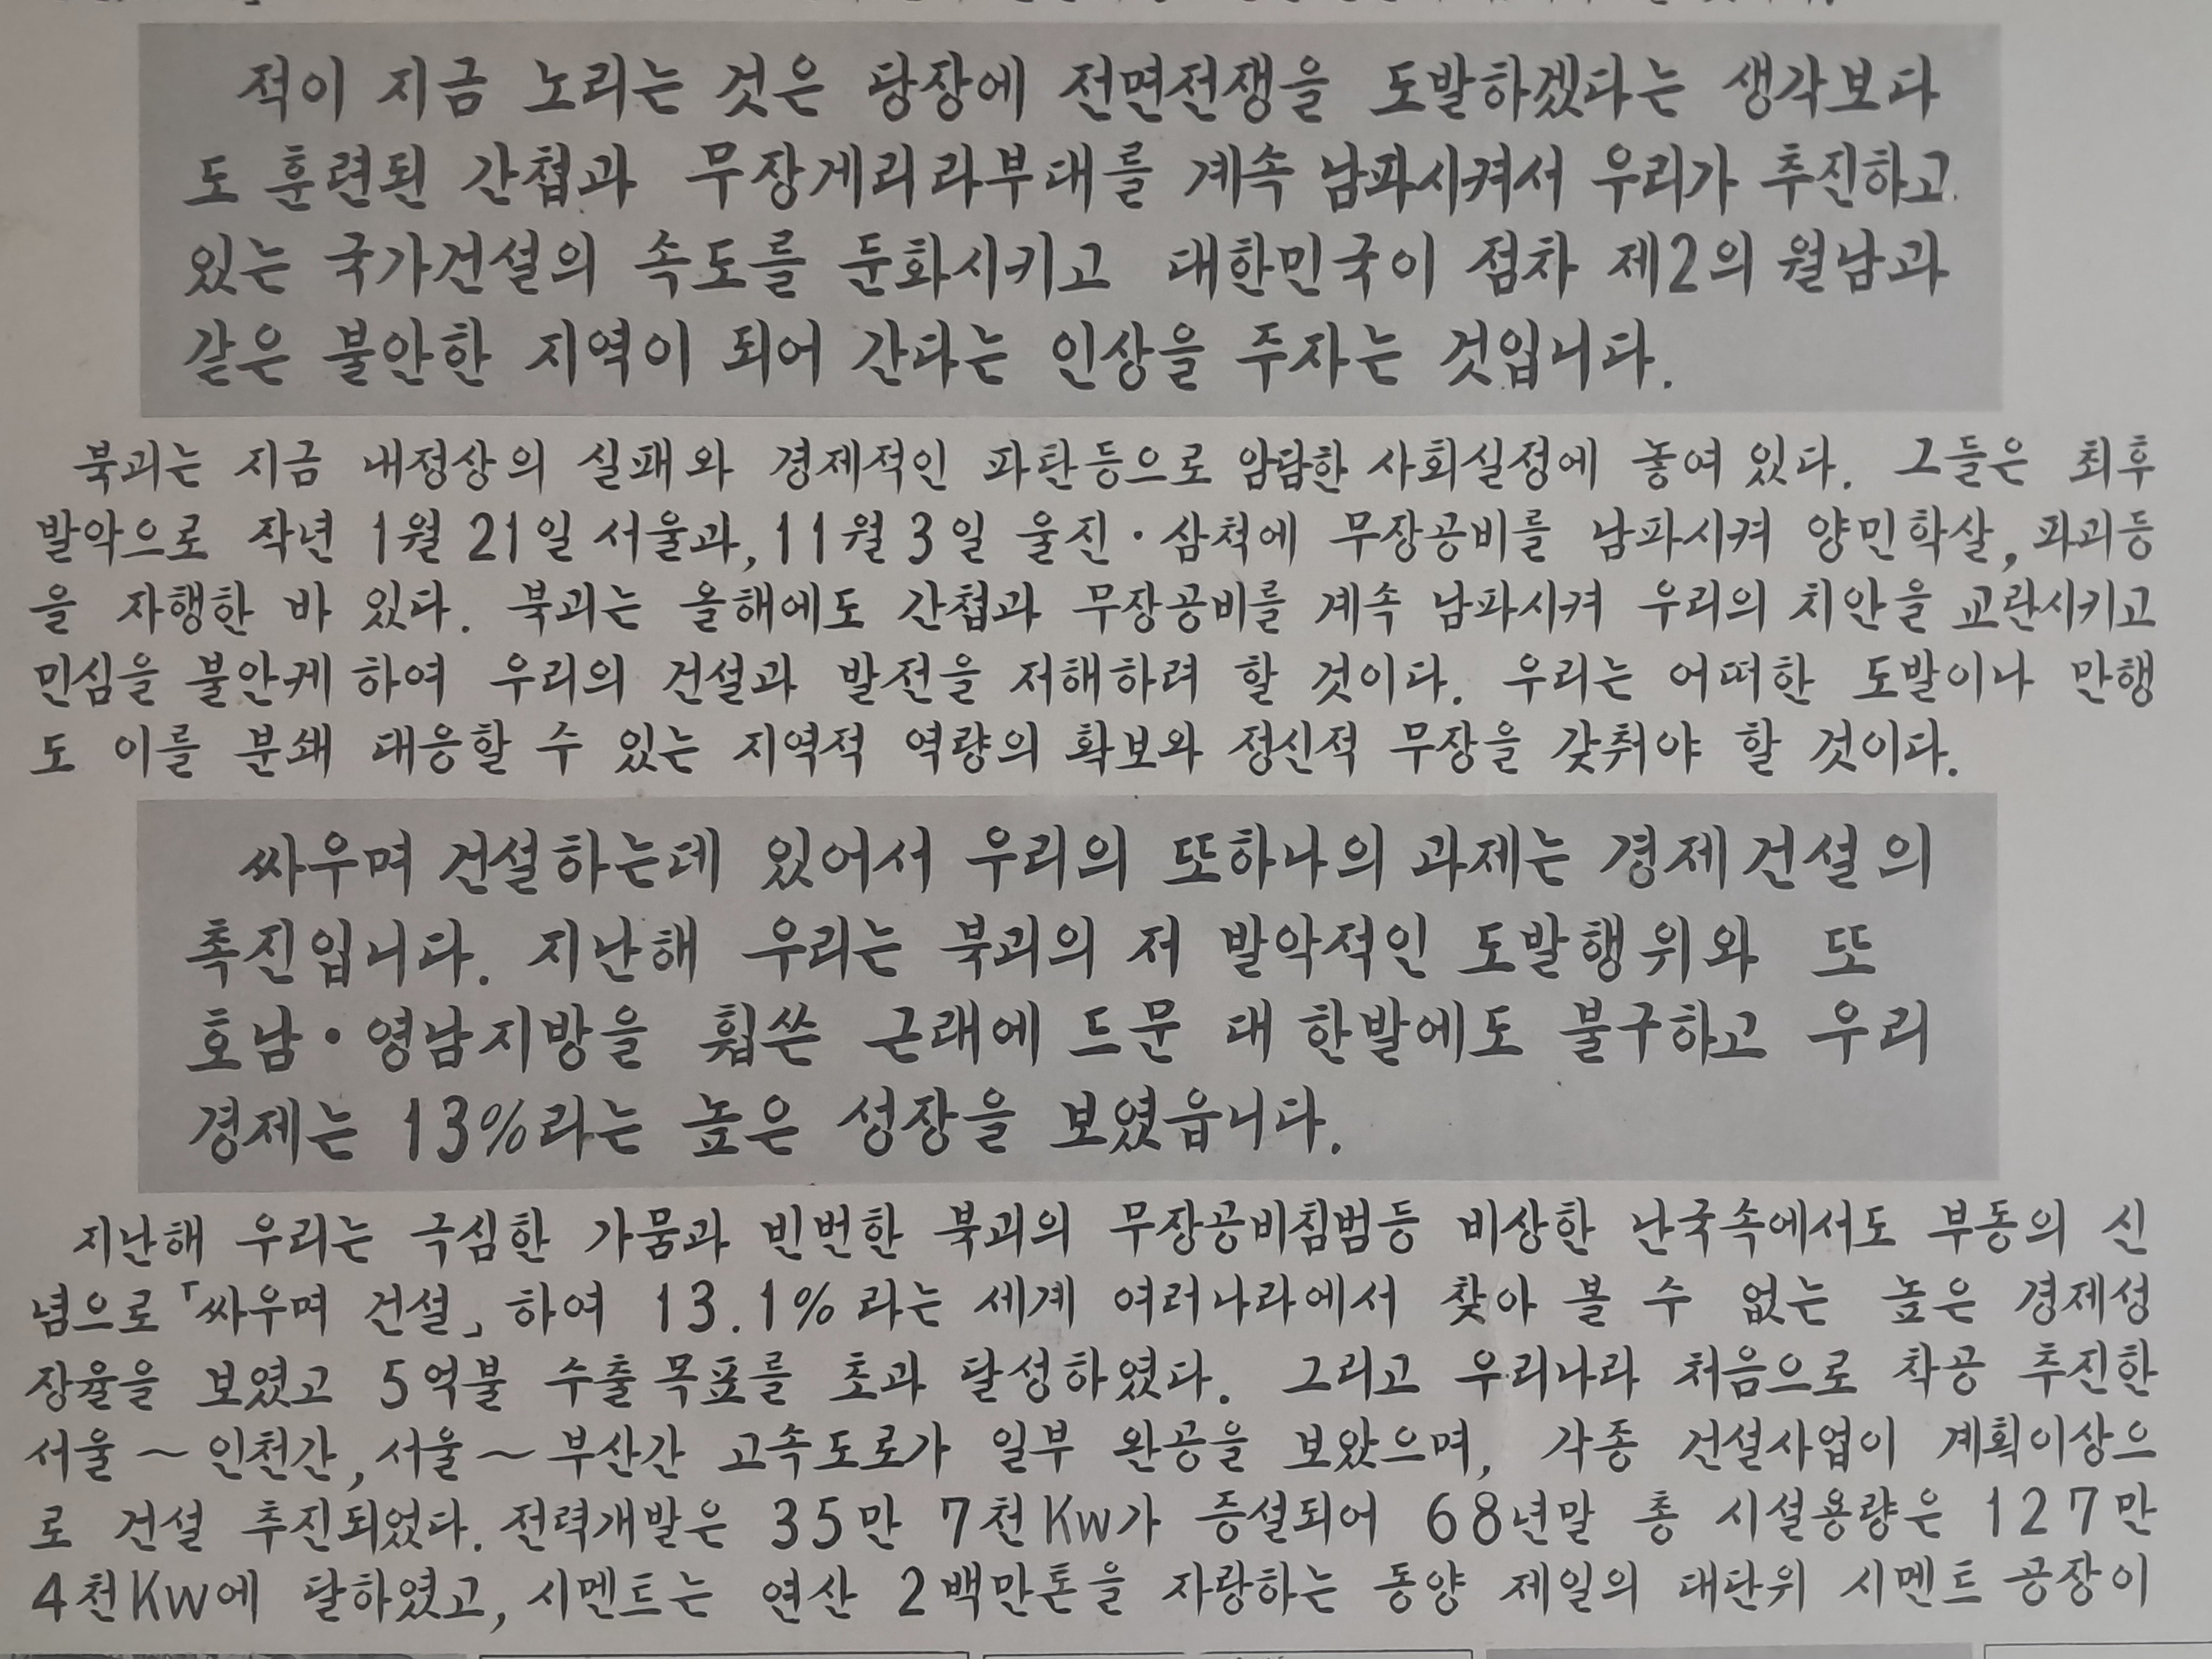 적이 지금 노리는 것은 당장에 전면전쟁을 도발하겠다는 생각보다
도 훈련된 간첩과 무장게리라부대를 계속 남파시켜서 우리가 추진하고
있는 국가건설의 속도를 둔화시키고 대한민국이 점차 제2의 월남과
같은 불안한 지역이 되어 간다는 인상을 주자는 것입니다.
북괴는 지금 내정상의 실패와 경제적인 파탄등으로 암담한 사회실정에 놓여 있다. 그들은 최후
발악으로 작년 1월 21일 서울과, 11월 3일 울진·삼척에 무장공비를 남파시켜 양민학살, 파괴등
을 자행한 바 있다. 북괴는 올해에도 간첩과 무장공비를 계속 남파시켜 우리의 치안을 교란시키고
민심을 불안케 하여 우리의 건설과 발전을 저해하려 할 것이다. 우리는 어떠한 도발이나 만행
도 이를 분쇄 대응할 수 있는 지역적 역량의 확보와 정신적 무장을 갖춰야 할 것이다.
싸우며 건설하는데 있어서 우리의 또하나의 과제는 경제건설의
촉진입니다. 지난해 우리는 북괴의 저 발악적인 도발행위와 또
호남·영남지방을 휩쓴 근래에 드문 대 한발에도 불구하고 우리
경제는 13%라는 높은 성장을 보였읍니다.
지난해 우리는 극심한 가뭄과 빈번한 북괴의 무장공비침범등 비상한 난국속에서도 부동의 신
념으로 「싸우며 건설」 하여 13.1%라는 세계 여러나라에서 찾아 볼 수 없는 높은 경제성
장율을 보였고 5억불 수출목표를 초과 달성하였다. 그리고 우리나라 처음으로 착공 추진한
서울~인천간, 서울~부산간 고속도로가 일부 완공을 보았으며, 각종 건설사업이 계획이상으
로 건설 추진되었다. 전력개발은 35만 7천Kw가 증설되어 68년말 총 시설용량은 127만
4천Kw에 달하였고, 시멘트는 연산 2백만톤을 자랑하는 동양 제일의 대단위 시멘트 공장이